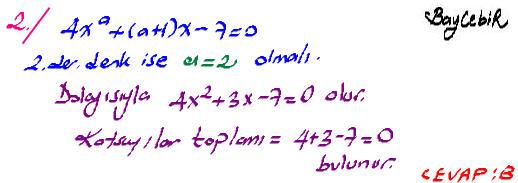 2./ 4xᵃ+(a+1)x-7=0
BayCebir
2.der. denk ise a=2 olmalı.
Dolayısıyla 4x²+3x-7=0 olur.
Katsayılar toplamı = 4+3-7=0
bulunur.
CEVAP:B